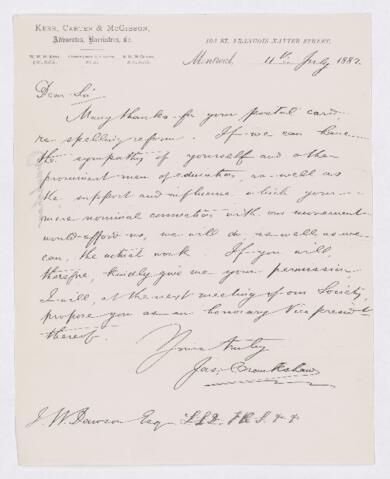 KERR, CARTER & McGIBBON,
Advocates, Barristers, &c.
103 ST. FRANCOIS XAVIER STREET,
Montreal 11th July 1882.
Dear Sir
Many thanks for your postal card
re spelling reform. If we can have
the sympathy of yourself and other
prominent men of education, as well as
the support and influence which your
mere nominal connection with our movement
would afford us, we will do, as well as we
can, the actual work. If you will,
therefore, kindly give me your permission
I will, at the next meeting of our Society,
propose you as an honorary Vice presidt
thereof.
Yours truly
Jas. Cronkshaw
J. W. Dawson Esq LLD. F.R.S. &c